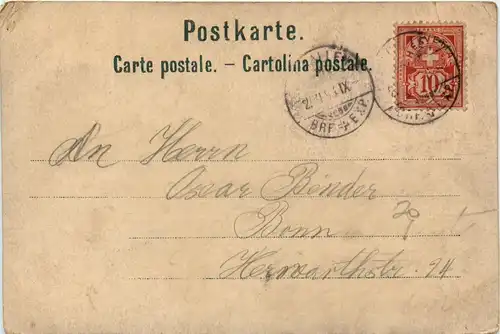 Postkarte.
Carte postale. – Cartolina postale.
10
BRF. EXP.
An Herrn
Oscar Binder
Bonn
Herwarthstr. 24